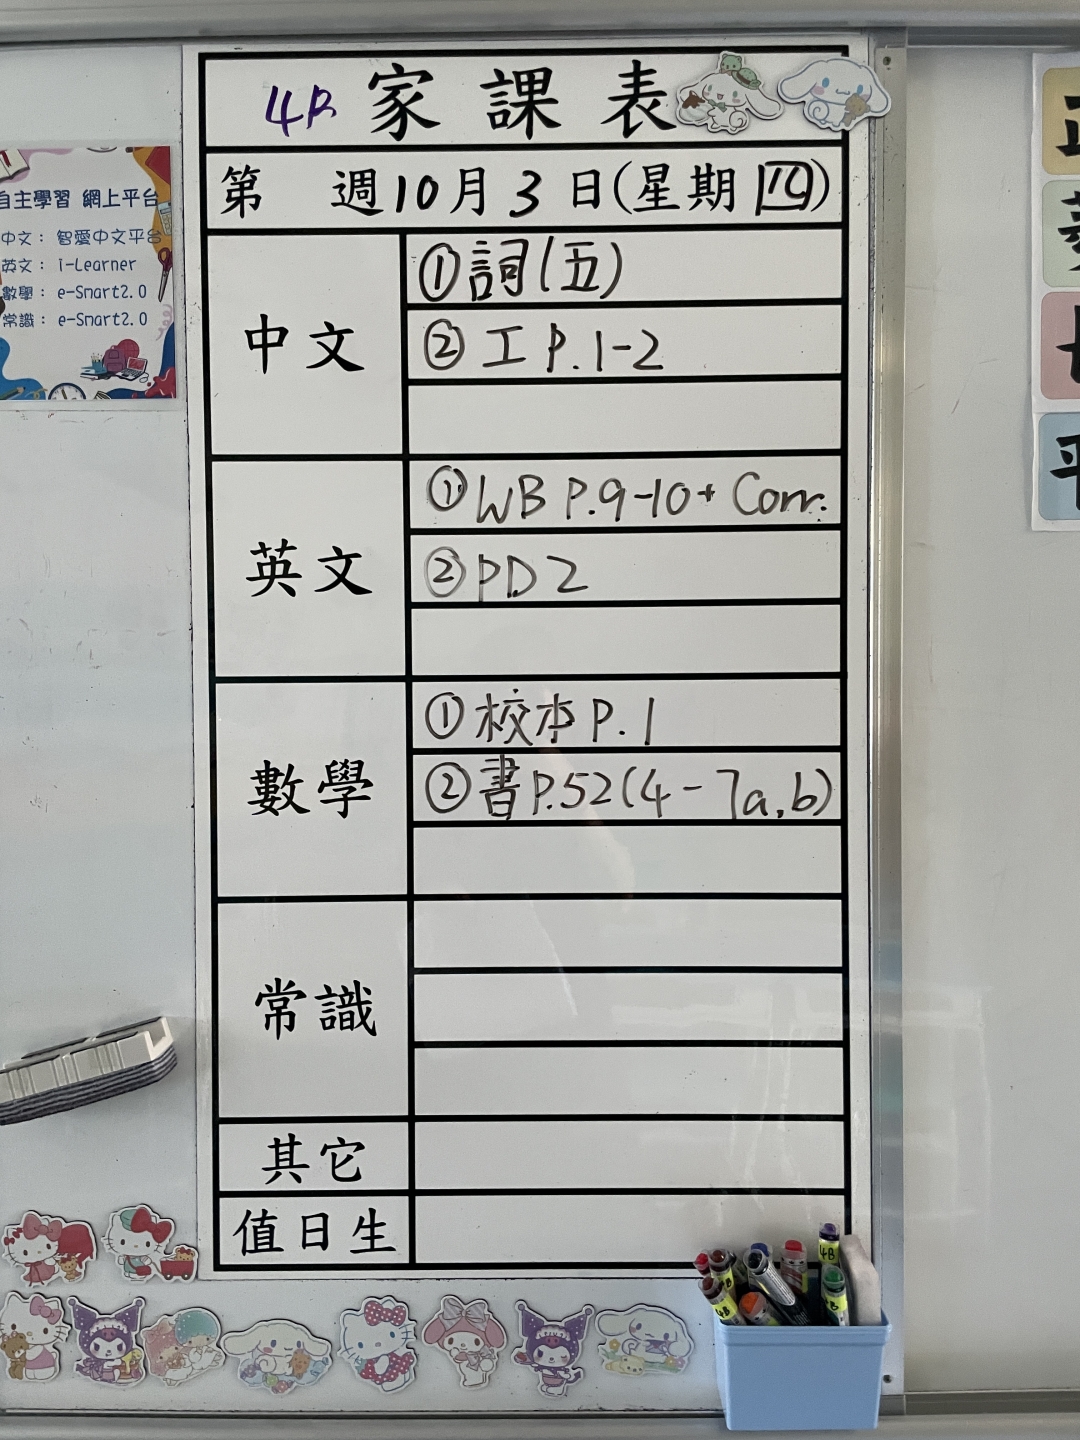 4B 家課表
第 週10月3日(星期四)
中文
①詞(五)
②工P.1-2
英文
①WB P.9-10+ Corr.
②PD2
數學
①校本P.1
②書P.52(4-7a,b)
常識
其它
值日生
自主學習 網上平台
中文: 智愛中文平台
英文: i-Learner
數學: e-Smart2.0
常識: e-Smart2.0
4B
4B